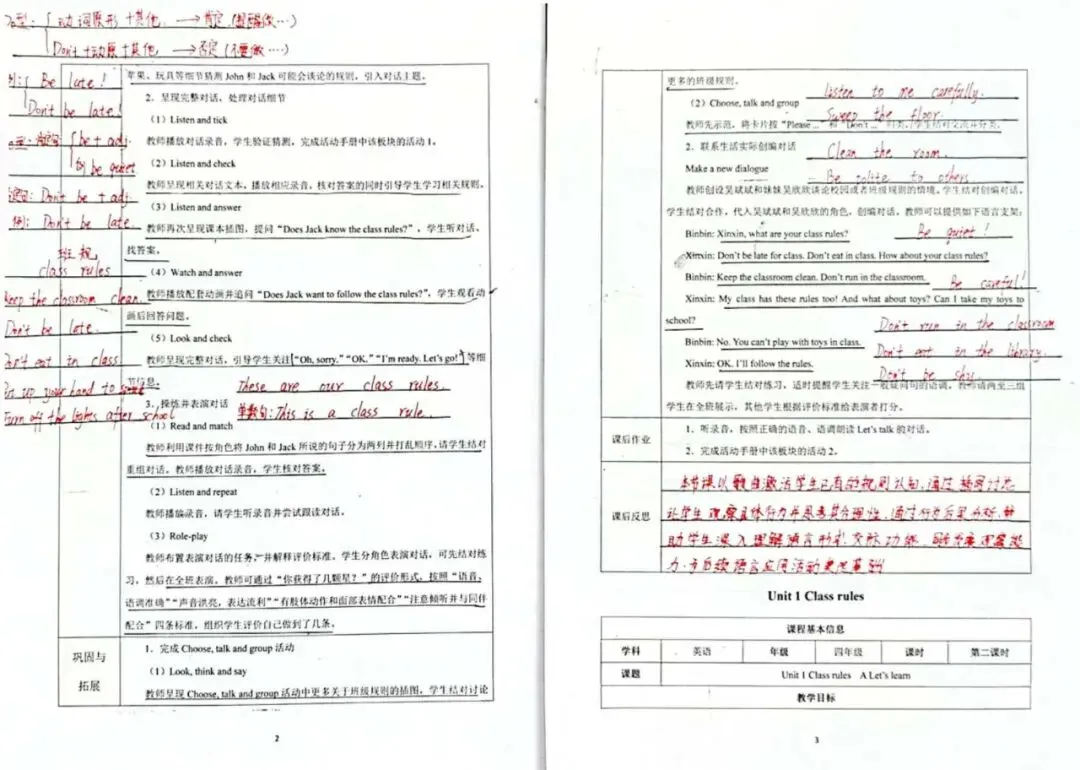 动词原形+其他 → 肯定
Don't+动原+其他 → 否定(不要做…)
Be late!
Don't be late!
be + adj.
be quiet
Don't be + adj.
例: Don't be late.
班规
class rules
keep the classroom clean.
Don't be late.
Don't eat in class.
Put up your hand to
Turn off the lights after school
苹果、玩具等细节猜测 John 和 Jack 可能会谈论的规则，引入对话主题。
2．呈现完整对话，处理对话细节
（1）Listen and tick
教师播放对话录音，学生验证猜测，完成活动手册中该板块的活动 1。
（2）Listen and check
教师呈现相关对话文本，播放相应录音，核对答案的同时引导学生学习相关规则。
（3）Listen and answer
教师再次呈现课本插图，提问“Does Jack know the class rules?”，学生听对话，
找答案。
（4）Watch and answer
教师播放配套动画并追问“Does Jack want to follow the class rules?”，学生观看动
画后回答问题。
（5）Look and check
教师呈现完整对话，引导学生关注“Oh, sorry.”“OK.”“I'm ready. Let's go!”等细
节信息。
These are our class rules.
3．操练并表演对话
单数句: This is a class rule.
（1）Read and match
教师利用课件按角色将 John 和 Jack 所说的句子分为两列并打乱顺序，请学生结对
重组对话。教师播放对话录音，学生核对答案。
（2）Listen and repeat
教师播放录音，请学生听录音并尝试跟读对话。
（3）Role-play
教师布置表演对话的任务，并解释评价标准。学生分角色表演对话，可先结对练
习，然后在全班表演。教师可通过“你获得了几颗星？”的评价形式，按照“语音、
语调准确”“声音洪亮，表达流利”“有肢体动作和面部表情配合”“注意倾听并与同伴
配合”四条标准，组织学生评价自己做到了几条。
巩固与
拓展
1．完成 Choose, talk and group 活动
（1）Look, think and say
教师呈现 Choose, talk and group 活动中更多关于班级规则的插图，学生结对讨论
2
更多的班级规则。
listen to me carefully.
（2）Choose, talk and group
Sweep the floor.
教师先示范，将卡片按“Please ...”和“Don't ...”归类，学生结对交流并分类。
2．联系生活实际创编对话
Clean the room.
Make a new dialogue
Be polite to others
教师创设吴斌斌和妹妹吴欣欣谈论校园或者班级规则的情境，学生结对创编对话。
学生结对合作，代入吴斌斌和吴欣欣的角色，创编对话。教师可以提供如下语言支架：
Binbin: Xinxin, what are your class rules?
Be quiet!
Xinxin: Don't be late for class. Don't eat in class. How about your class rules?
Binbin: Keep the classroom clean. Don't run in the classroom.
Be careful!
Xinxin: My class has these rules too! And what about toys? Can I take my toys to
school?
Don't run in the classroom
Binbin: No. You can't play with toys in class.
Don't eat in the library.
Xinxin: OK. I'll follow the rules.
Don't be
教师先请学生结对练习，适时提醒学生关注一般疑问句的语调。教师请两至三组
学生在全班展示，其他学生根据评价标准给表演者打分。
课后作业
1．听录音，按照正确的语音、语调朗读 Let's talk 的对话。
2．完成活动手册中该板块的活动 2。
课后反思
本节课以歌曲激活学生已有的规则认知，通过插图讨论
让学生观察具体行为并思考其合理性，通过行为后果分析，帮
助学生深入理解语言形式、交际功能，
力，为后续语言应用活动奠定基础
Unit 1 Class rules
课程基本信息
学科 英语 年级 四年级 课时 第二课时
课题 Unit 1 Class rules A Let's learn
教学目标
3